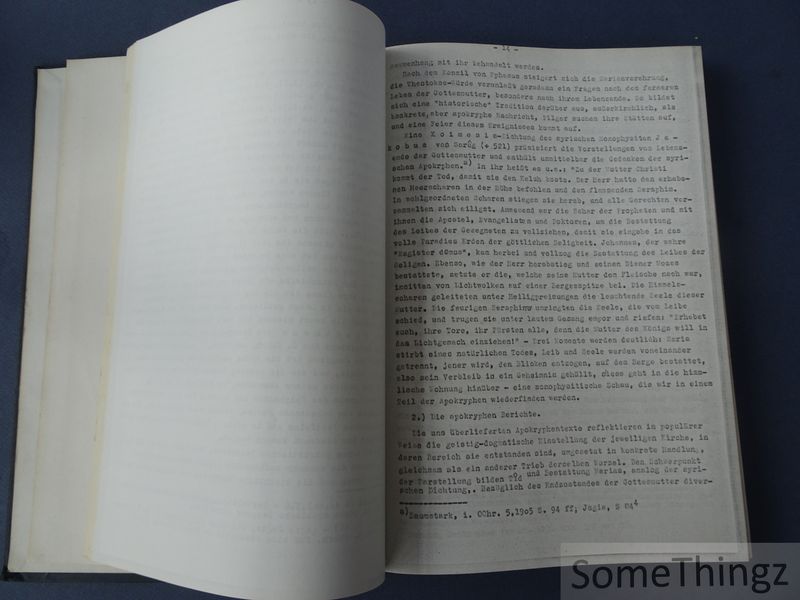 - 14 -
menhang mit ihr behandelt werden.
Nach dem Konzil von Ephesus steigert sich die Marienverehrung,
die Theotokos-Würde veranlaßt geradezu ein Fragen nach dem ferneren
Leben der Gottesmutter, besonders nach ihrem Lebensende. So bildet
sich eine "historische" Tradition darüber aus, außerkirchlich, als
konkrete, aber apokryphe Nachricht, Pilger suchen ihre Stätten auf,
und eine Feier dieses Ereignisses kommt auf.
Eine K o i m e s i s-Dichtung des syrischen Monophysiten J a -
k o b u s von Serûg (+ 521) präzisiert die Vorstellungen vom Lebens-
ende der Gottesmutter und enthüll unmittelbar die Gedanken der syri-
schen Apokryphen.a) In ihr heißt es u.a.: "Zu der Mutter Christi
kommt der Tod, damit sie den Kelch koste. Der Herr hatte den erhabe-
nen Heerscharen in der Höhe befohlen und den flammenden Seraphim.
In wohlgeordneten Scharen stiegen sie herab, und alle Gerechten ver-
sammelten sich eiligst. Anwesend war die Schar der Propheten und mit
ihnen die Apostel, Evangelisten und Doktoren, um die Bestattung
des Leibes der Gesegneten zu vollziehen, damit sie eingehe in das
volle Paradies Erden der göttlichen Seligkeit. Johannes, der wahre
"Magister domus", kam herbei und vollzog die Bestattung des Leibes der
Seligen. Ebenso, wie der Herr herabstieg und seinen Diener Moses
bestattete, setzte er die, welche seine Mutter dem Fleische nach war,
inmitten von Lichtwolken auf einer Bergesspitze bei. Die Himmels-
scharen geleiteten unter Heiligpreisungen die leuchtende Seele dieser
Mutter. Die feurigen Seraphim umringten die Seele, die vom Leibe
schied, und trugen sie unter lautem Gesang empor und riefen: "Erhebet
euch, ihre Tore, ihr Fürsten alle, denn die Mutter des Königs will in
das Lichtgemach einziehen!" - Drei Momente werden deutlich: Maria
stirbt eines natürlichen Todes, Leib und Seele werden voneinander
getrennt, jener wird, den Blicken entzogen, auf dem Berge bestattet,
also sein Verbleib in ein Geheimnis gehüllt, diese geht in die himm-
lische Wohnung hinüber - eine monophysitische Schau, die wir in einem
Teil der Apokryphen wiederfinden werden.
2.) Die apokryphen Berichte.
Die uns überlieferten Apokryphentexte reflektieren in populärer
Weise die geistig-dogmatische Einstellung der jeweiligen Kirche, in
deren Bereich sie entstanden sind, umgesetzt in konkrete Handlung,
gleichsam als ein anderer Trieb derselben Wurzel. Den Schwerpunkt
der Darstellung bilden Tod und Bestattung Marias, analog der syri-
schen Dichtung,. Bezüglich des Endzustandes der Gottesmutter diver-
a)Baumstark, i. OChr. 5,1905 S. 94 ff; Jugie, S 84⁴
SomeThingz